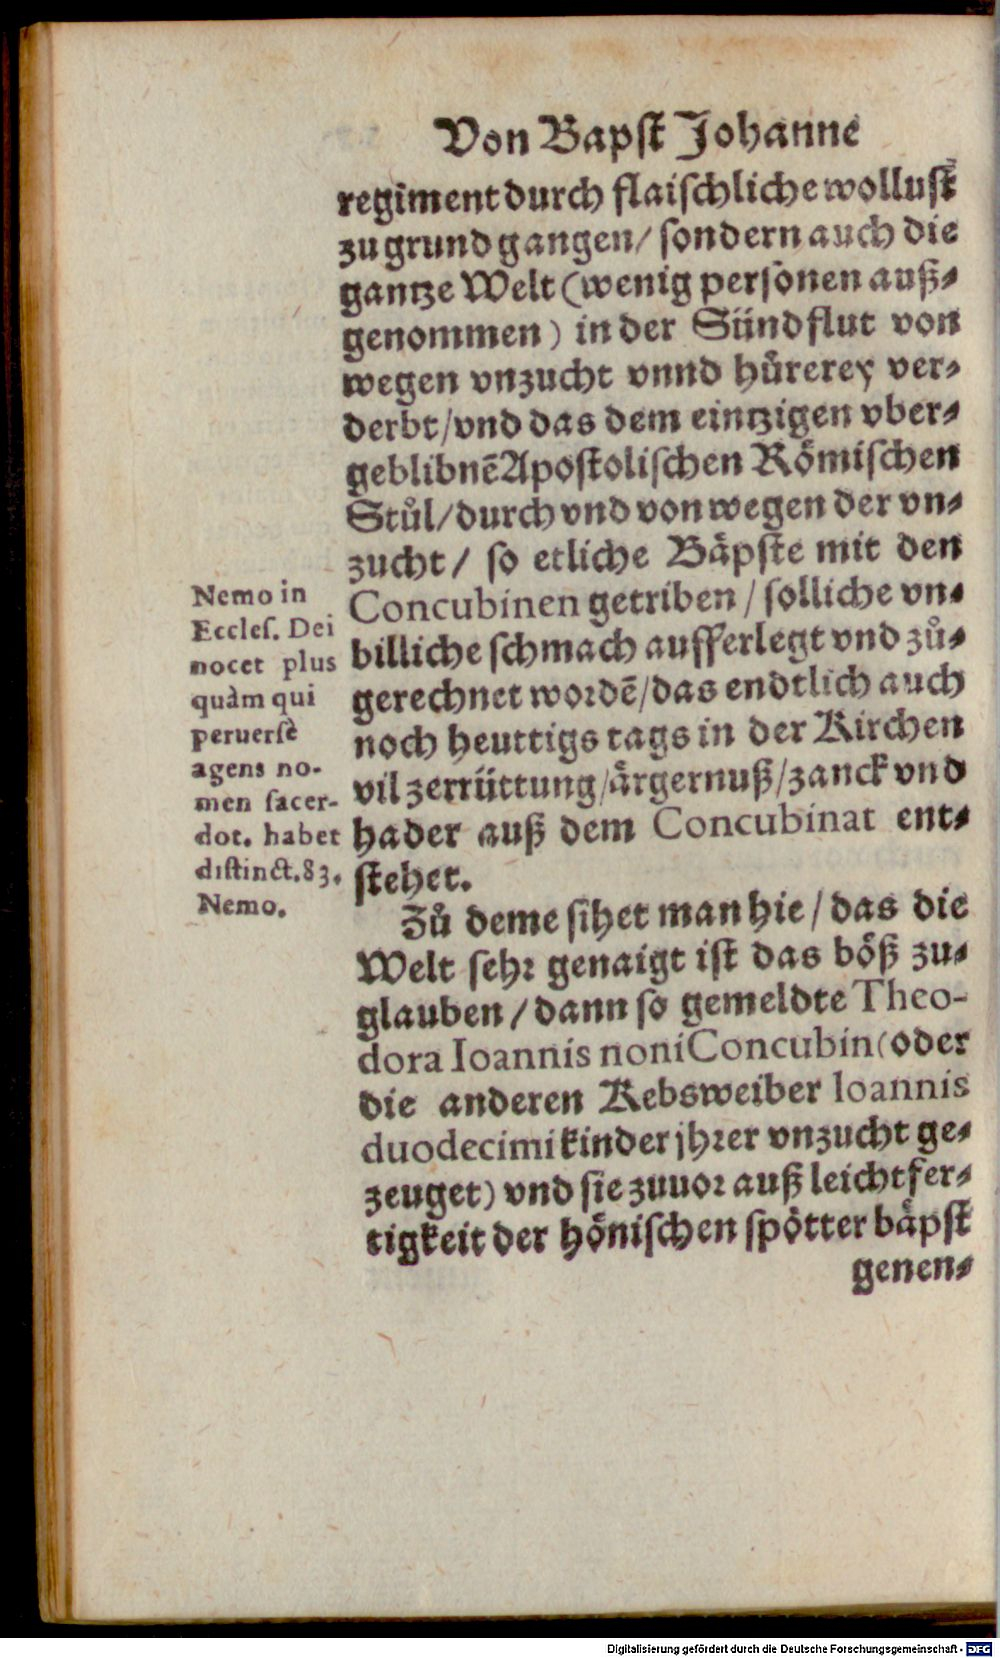 Von Bapst Johanne
regiment durch flaischliche wollust
zu grund gangen/ sondern auch die
gantze Welt (wenig personen auß-
genommen) in der Sündflut von
wegen vnzucht vnnd hůrerey ver-
derbt/ vnd das dem eintzigen vber-
geblibnẽ Apostolischen Römischen
Stůl/ durch vnd von wegen der vn-
zucht/ so etliche Bäpste mit den
Concubinen getriben/ solliche vn-
billiche schmach aufferlegt vnd zů-
gerechnet wordẽ/ das endtlich auch
noch heuttigs tags in der Kirchen
vil zerrüttung/ ärgernuß/ zanck vnd
hader auß dem Concubinat ent-
stehet.
Nemo in
Eccles. Dei
nocet plus
quàm qui
peruersè
agens no-
men sacer-
dot. habet
distinct. 83.
Nemo.
Zů deme sihet man hie/ das die
Welt sehr genaigt ist das böß zu-
glauben/ dann so gemeldte Theo-
dora Ioannis noni Concubin (oder
die anderen Kebsweiber Ioannis
duodecimi kinder jhrer vnzucht ge-
zeuget) vnd sie zuuor auß leichtfer-
tigkeit der hönischen spötter bäpst
genen-
Digitalisierung gefördert durch die Deutsche Forschungsgemeinschaft - DFG